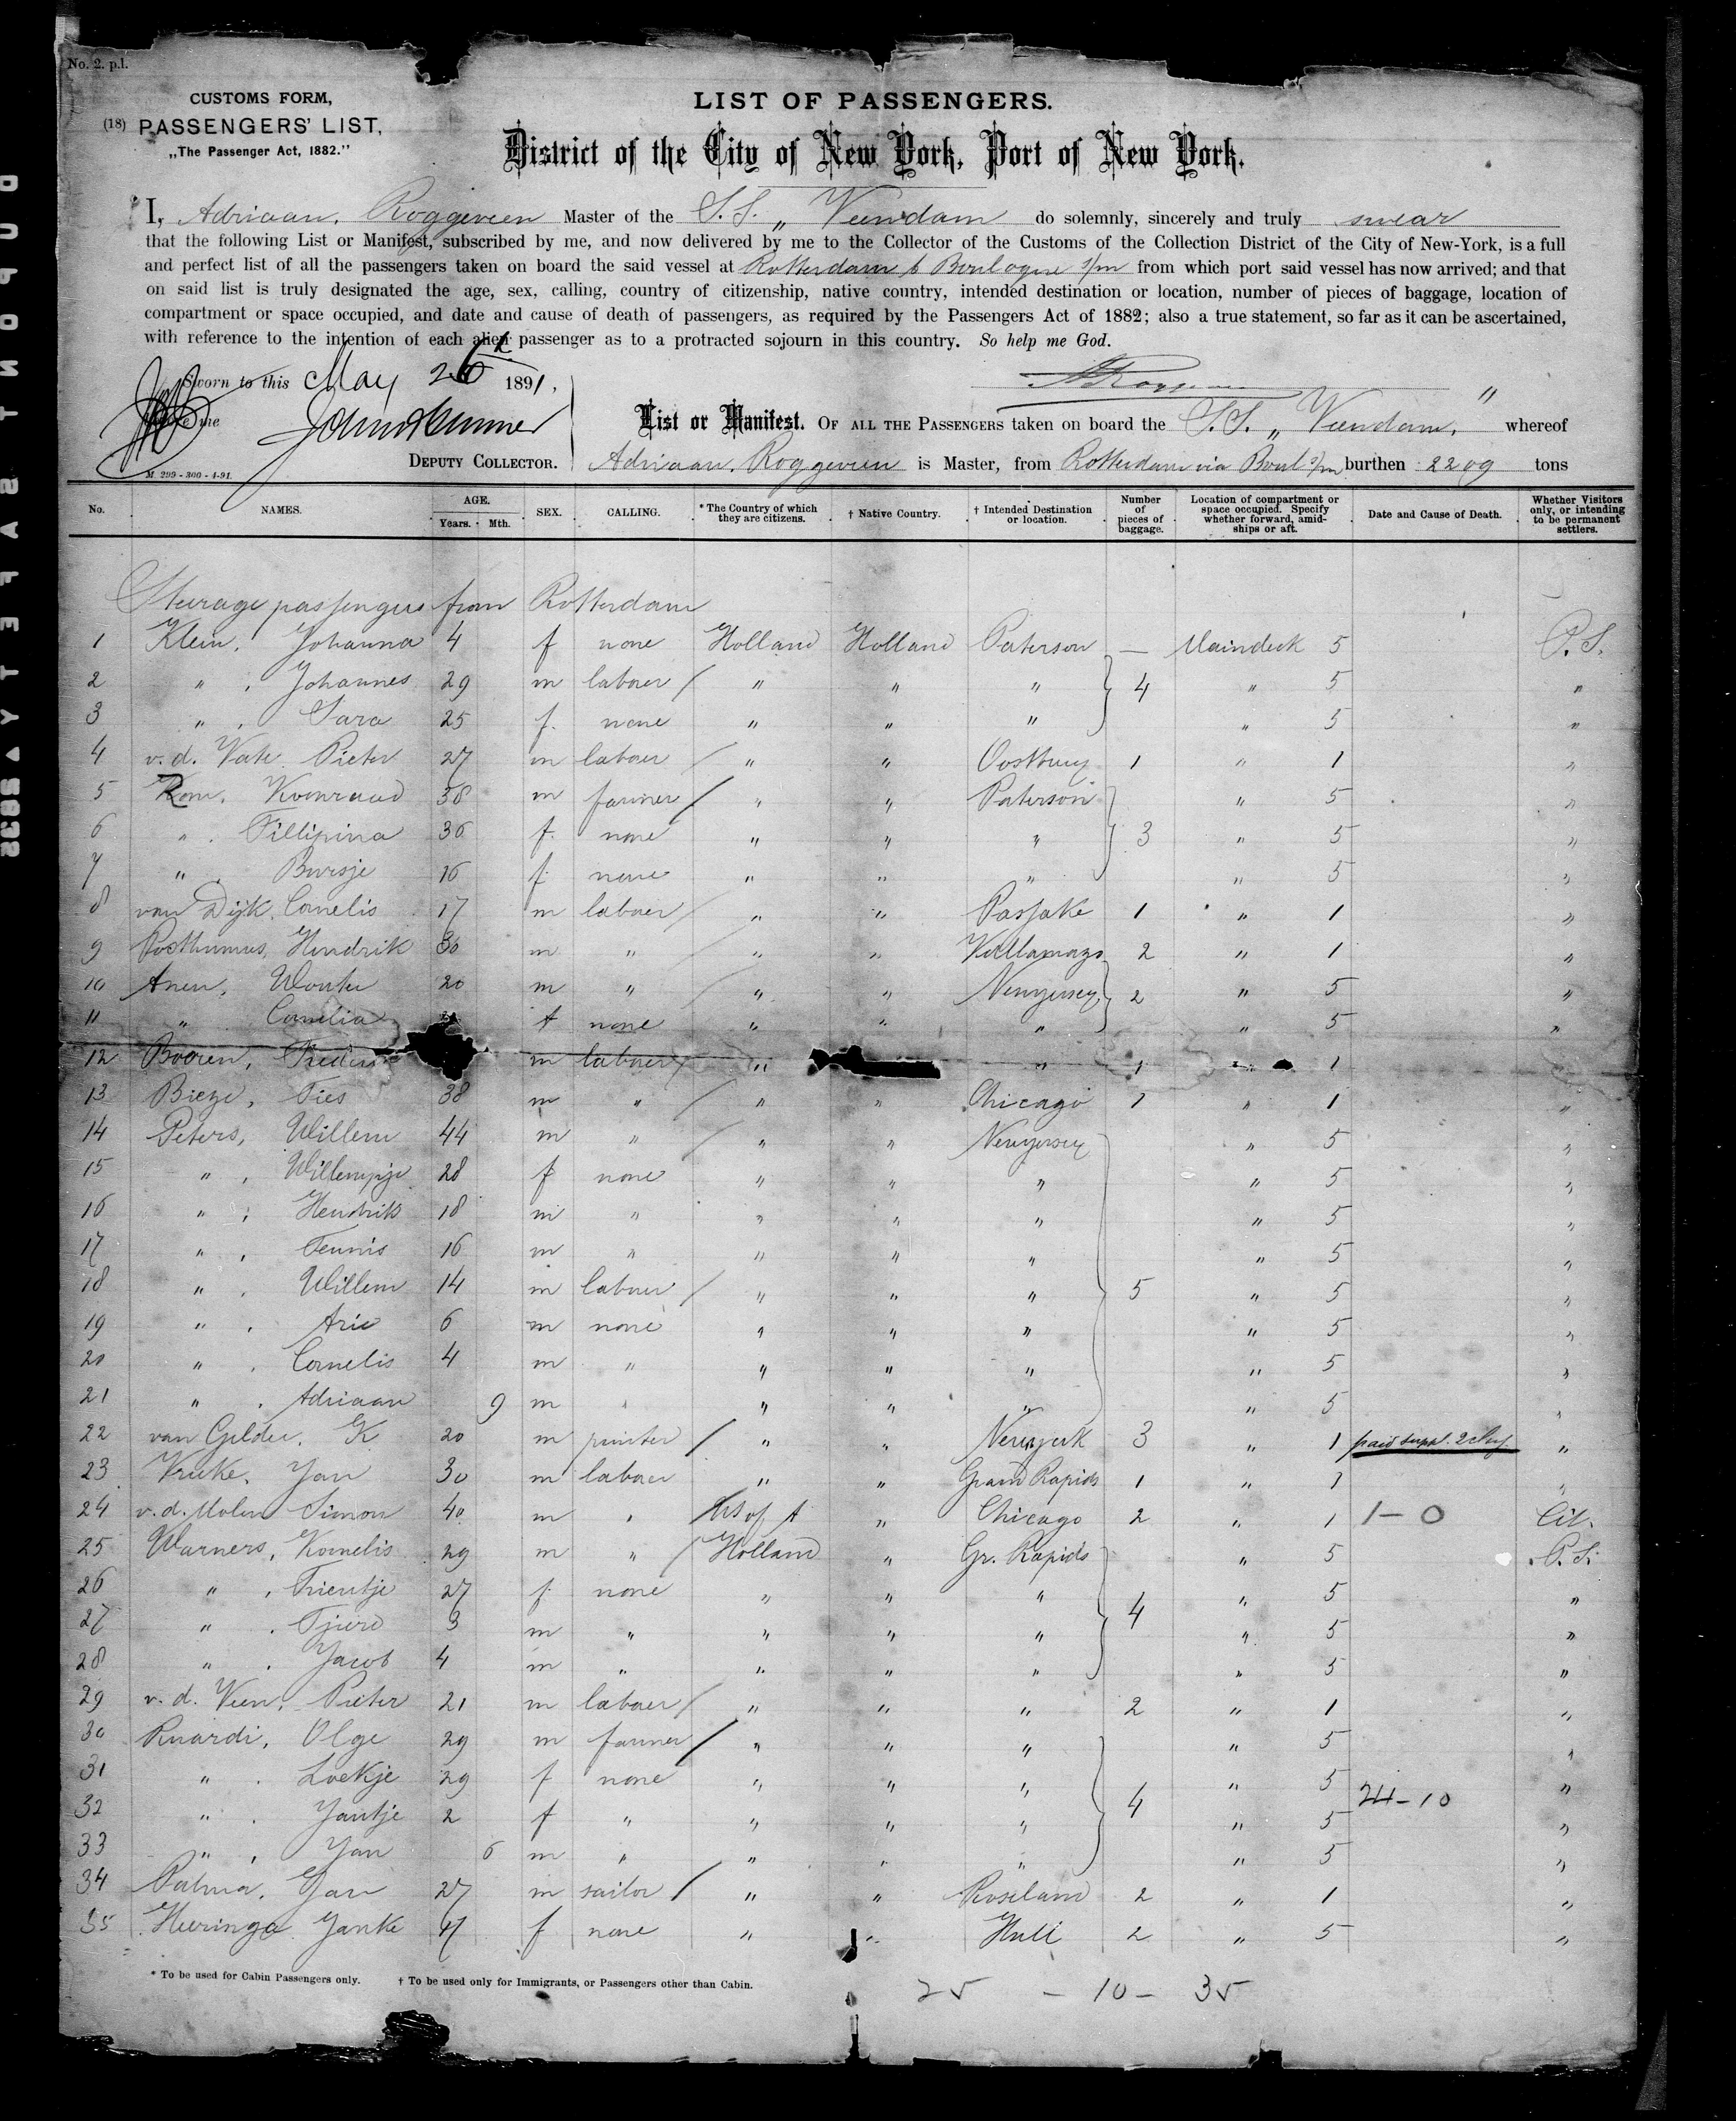 No. 2. p.l.
CUSTOMS FORM,
(18) PASSENGERS' LIST,
„The Passenger Act, 1882."
LIST OF PASSENGERS.
District of the City of New York, Port of New York.
I, Adriaan. Roggeveen Master of the S.S. „ Veendam do solemnly, sincerely and truly swear
that the following List or Manifest, subscribed by me, and now delivered by me to the Collector of the Customs of the Collection District of the City of New-York, is a full
and perfect list of all the passengers taken on board the said vessel at Rotterdam & Boulogne s/m from which port said vessel has now arrived; and that
on said list is truly designated the age, sex, calling, country of citizenship, native country, intended destination or location, number of pieces of baggage, location of
compartment or space occupied, and date and cause of death of passengers, as required by the Passengers Act of 1882; also a true statement, so far as it can be ascertained,
with reference to the intention of each alien passenger as to a protracted sojourn in this country. So help me God.
Sworn to this May 26th 1891,
me
DEPUTY COLLECTOR.
M. 299 - 300 - 4-91.
List or Manifest. OF ALL THE PASSENGERS taken on board the S.S. „ Veendam, " whereof
Adriaan. Roggeveen is Master, from Rotterdam via Boul s/m burthen 2209 tons
No. NAMES. AGE. Years. Mth. SEX. CALLING. * The Country of which they are citizens. † Native Country. † Intended Destination or location. Number of pieces of baggage. Location of compartment or space occupied. Specify whether forward, amidships or aft. Date and Cause of Death. Whether Visitors only, or intending to be permanent settlers.
Steerage passengers from Rotterdam
1 Klein, Johanna 4 f none Holland Holland Paterson — Maindeck 5 P.S.
2 " , Johannes 29 m laborer / " " " 4 " 5 "
3 " , Sara 25 f. none " " " " 5 "
4 v.d. Vate Pieter 27 m laborer / " " Oostburg 1 " 1 "
5 Kom, Koenraad 38 m farmer / " " Paterson " 5 "
6 " . Fillipina 36 f. none " " " 3 " 5 "
7 " . 16 f. none " " " " 5 "
8 van Dijk, Cornelis 17 m laborer / " " Passake 1 " 1 "
9 Posthumus, Hendrik 30 m " / " " Kallamazo 2 " 1 "
10 Anen, Wouter 20 m " / " " Newyersey 2 " 5 "
11 " Cornelia f none " " " " 5 "
12 Booren, m laborer / " " 1 " 1
13 Bieze, Ties 38 m " / " " Chicago 1 " 1 "
14 Peters, Willem 44 m " / " " Newyersey " 5 "
15 " , Willempje 28 f none " " " " 5 "
16 " , Hendrik 18 m " " " " " 5 "
17 " , Teunis 16 m " " " " " 5 "
18 " . Willem 14 m laborer / " " " 5 " 5 "
19 " . Arie 6 m none " " " " 5 "
20 " . Cornelis 4 m " " " " " 5 "
21 " . Adriaan 9 m " " " " " 5 "
22 van Gelder, K 20 m printer / " " Newyork 3 " 1 paid suppl. "
23 Vrieke, Jan 30 m laborer " " Grand Rapids 1 " 1 "
24 v.d. Molen Simon 40 m " US of A " Chicago 2 " 1 1-0 Cit.
25 Warners, Kornelis 29 m " / Holland " Gr. Rapids " 5 P.S.
26 " , Trientje 27 f. none " " " " 5 "
27 " . Tjeerd 3 m " " " " 4 " 5 "
28 " . Jacob 4 m " " " " " 5 "
29 v.d. Veen, Pieter 21 m laborer / " " " 2 " 1 "
30 Ruardi, Olge 29 m farmer / " " " " 5 "
31 " . Loekje 29 f none " " " " 5 "
32 " . Jantje 2 f " " " " 4 " 5 24-10 "
33 " , Jan 6 m " " " " " 5 "
34 Palma, Jan 27 m sailor / " " Roseland 2 " 1 "
35 Heeringa Janke 17 f none " " Hull 2 " 5 "
* To be used for Cabin Passengers only. † To be used only for Immigrants, or Passengers other than Cabin.
25 - 10 - 35